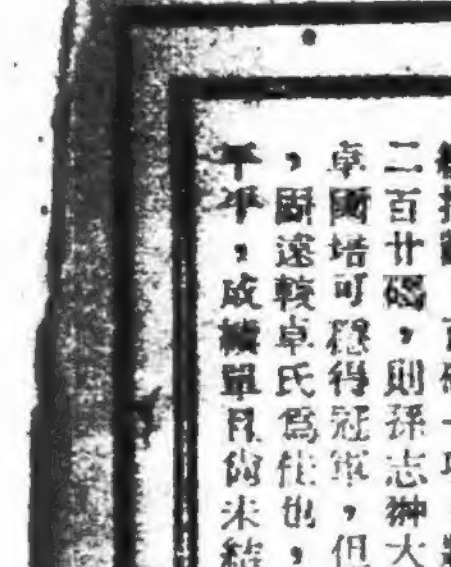 二百廿碼，則孫志翀大
卓國培可穩得冠軍，但
，閻遠較卓氏爲佳也，
平平，成績單且尙未結